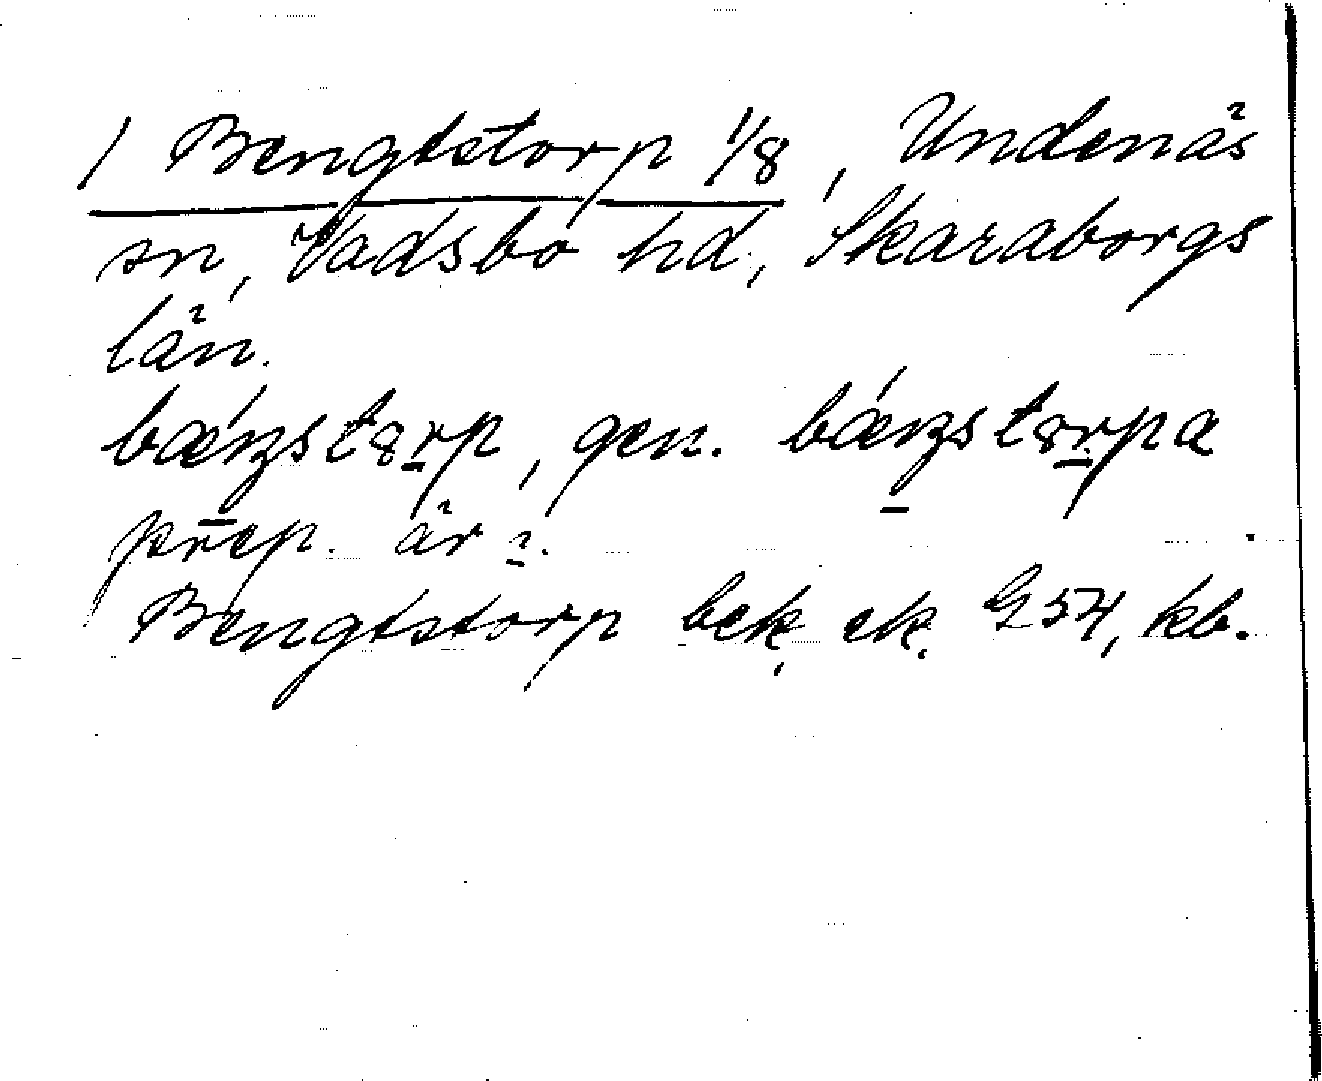 1 Bengtstorp 1/8, Undenäs
sn, Vadsbo hd, Skaraborgs
län.
bǽŋstɞrp, gen. bǽŋstɞrpa
prep. är i.
Bengtstorp bek. ek. G 54, kb.